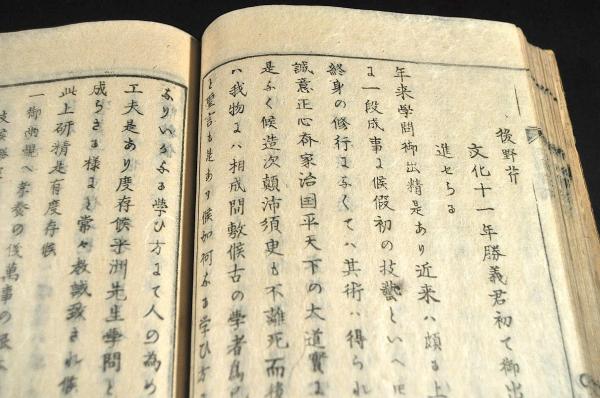 後野芥
文化十一年勝義君初て御出
進せらる
年来学問御出精是あり近来ハ頗る上
一段成事に候假初の技藝といへ
終身の修行になくてハ其術ハ得られ
誠意正心斉家治国平天下の大道実に
是なく候造次顛沛須臾も不離死而
ハ我物にハ相成間敷候古の学者
と聖言も是あり候如何なる学ひ方
なりいかなる学ひ方にて人の為め
工夫是あり度存候平洲先生学問と
成らさる様にと常々教誡致され候
此上研精是有度存候
一御幽居へ孝養の後萬事の